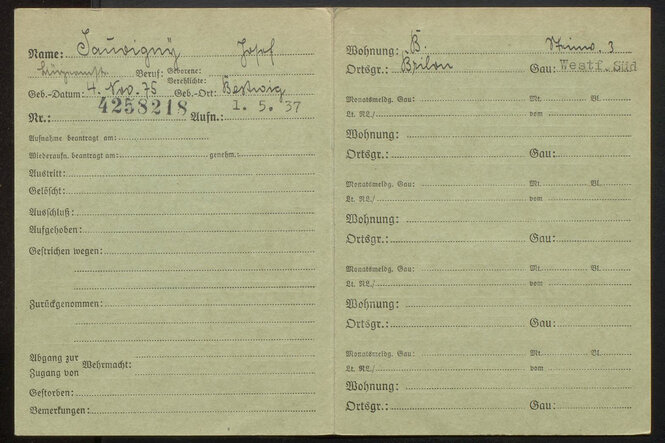 Name: Sauvigny Josef
Beruf: Geborene:
Verehlichte:
Geb.-Datum: 4. Nov. 75 Geb.-Ort: Bestwig
Nr.: 4258218 Aufn.: 1. 5. 37
Aufnahme beantragt am:
Wiederaufn. beantragt am: genehm.:
Austritt:
Gelöscht:
Ausschluß:
Aufgehoben:
Gestrichen wegen:
Zurückgenommen:
Abgang zur
Zugang von
Wehrmacht:
Gestorben:
Bemerkungen:
Wohnung: B. 3
Ortsgr.: Brilon Gau: Westf. Süd
Monatsmeldg. Gau: Mt. Bl.
Lt. RL./ vom
Wohnung:
Ortsgr.: Gau:
Monatsmeldg. Gau: Mt. Bl.
Lt. RL./ vom
Wohnung:
Ortsgr.: Gau:
Monatsmeldg. Gau: Mt. Bl.
Lt. RL./ vom
Wohnung:
Ortsgr.: Gau:
Monatsmeldg. Gau: Mt. Bl.
Lt. RL./ vom
Wohnung:
Ortsgr.: Gau: